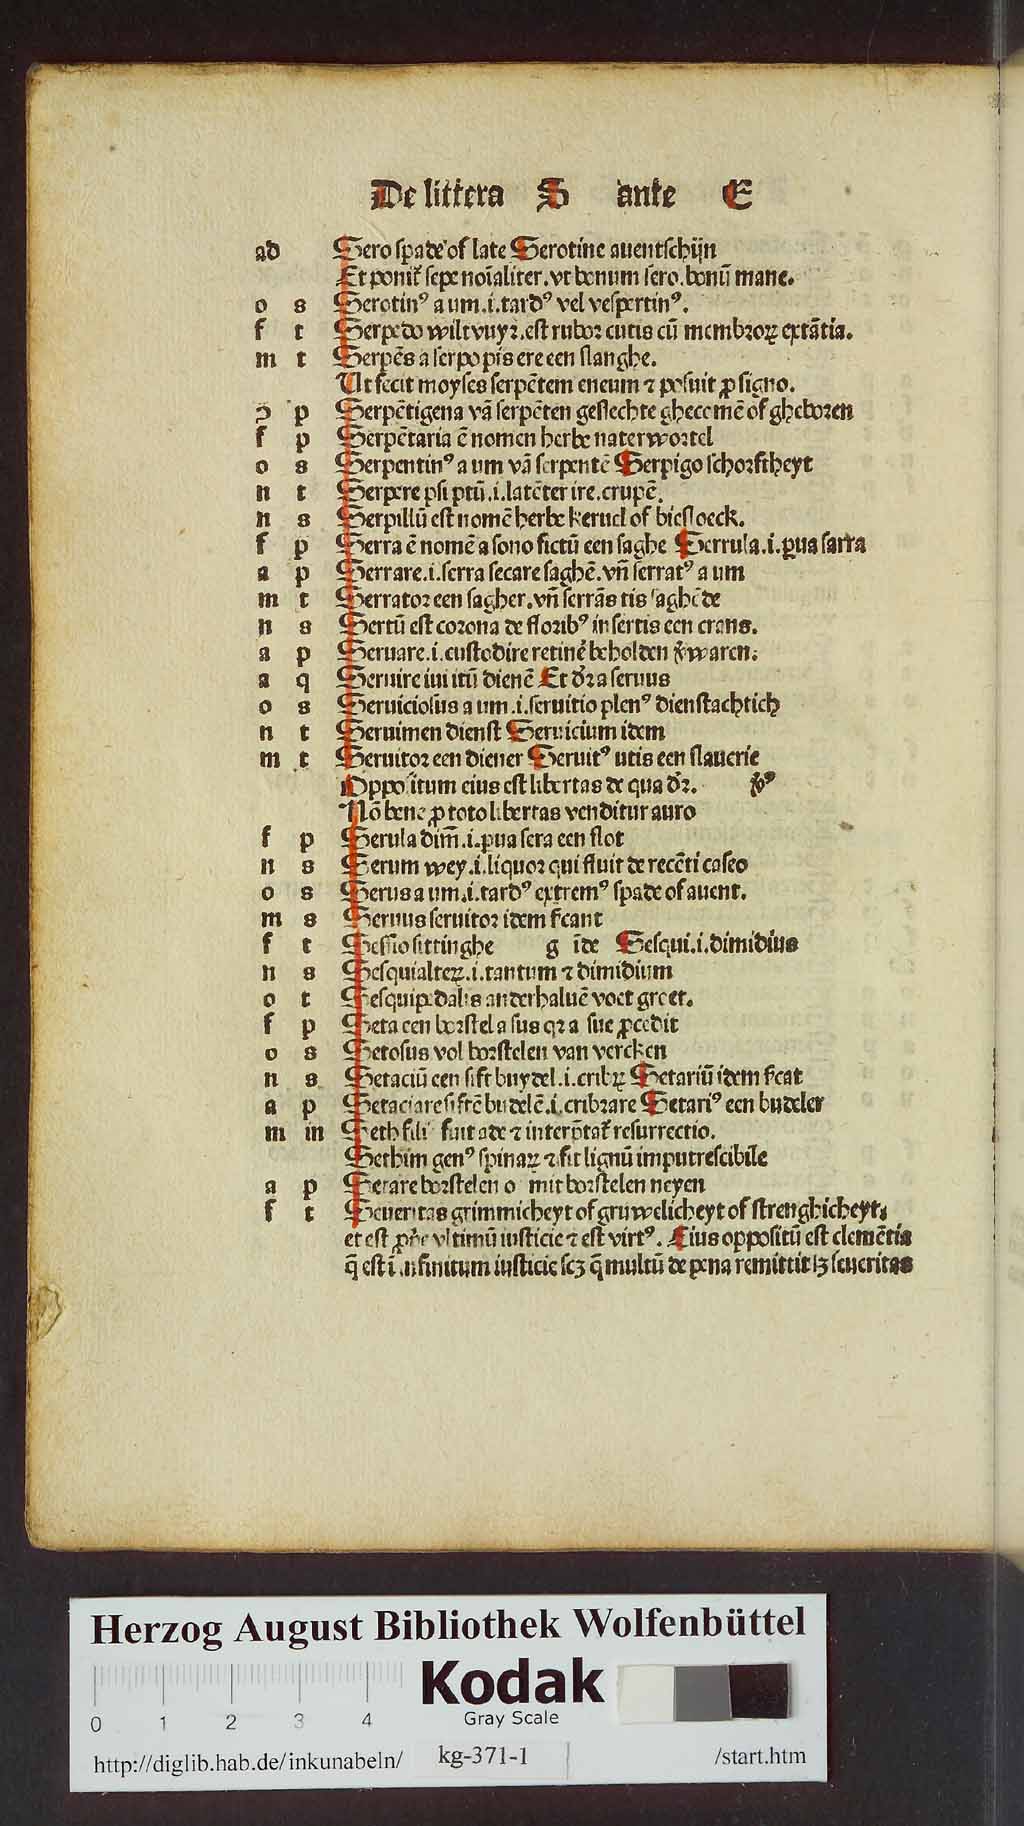 De littera S ante E
ad Sero spade of late Serotine auentschijn
Et ponit᷑ sepe noīaliter. vt bonum sero. bonū mane.
o s Serotinꝰ a um .i. tardꝰ vel vespertinꝰ.
f t Serpedo wiltvuyꝛ. est rubor cutis cū membroꝝ extātia.
m t Serpēs a serpo pis ere een slanghe.
Ut fecit moyses serpētem eneum ⁊ posuit ꝓ signo.
ɔ p Serpētigena vā serpēten geslechte ghecomē of gheboren
f p Serpētaria ē nomen herbe naterwortel
o s Serpentinꝰ a um vā serpentē Serpigo schorftheyt
n t Serpere psi ptū .i. latēter ire. crupē.
n s Serpillū est nomē herbe keruel of biesloeck.
f p Serra ē nomē a sono fictū een saghe Serrula .i. ꝑua sarra
a p Serrare .i. serra secare saghē. vñ serratꝰ a um
m t Serrator een sagher. vñ serrās tis saghēde
n s Sertū est corona de floribꝰ insertis een crans.
a p Seruare .i. custodire retinē beholden v̓waren.
a q Seruire iui itū dienē Et dꝛ̄ a seruus
o s Seruiciosus a um .i. seruitio plenꝰ dienstachtich
n t Seruimen dienst Seruicium idem
m t Seruitor een diener Seruitꝰ utis een slauerie
Oppositum eius est libertas de qua dꝛ̄. v̓ꝰ
Nō bene ꝓ toto libertas venditur auro
f p Serula dim̄ .i. ꝑua sera een slot
n s Serum wey .i. liquor qui fluit de recēti caseo
o s Serus a um .i. tardꝰ extremꝰ spade of auent.
m s Seruus seruitor idem s̄cant
f t Sessio sittinghe g īde Sesqui .i. dimidius
n s Sesquialteꝝ .i. tantum ⁊ dimidium
o t Sesquipedalis anderhaluē voet groet.
f p Seta een borstel a sus qꝛ a sue ꝓcedit
o s Setosus vol borstelen van vercken
n s Setaciū een sift buydel .i. cribꝝ Setariū idem s̄cat
a p Setaciare siftē budelē .i. cribrare Setariꝰ een budeler
m in Seth filiꝰ fuit ade ⁊ interp̄tat᷑ resurrectio.
Sethim genꝰ spinaꝝ ⁊ fit lignū imputrescibile
a p Setare borstelen o mit borstelen neyen
f t Seueritas grimmicheyt of gruwelicheyt of strenghicheyt.
et est vltimū iusticie ⁊ est virtꝰ. Eius oppositū est clemētia
q̄ est infinitum iusticie scꝫ q̄ multū de pena remittit lꝫ seueritas
Herzog August Bibliothek Wolfenbüttel
Kodak
Gray Scale
0 1 2 3 4
http://diglib.hab.de/inkunabeln/ kg-371-1 /start.htm